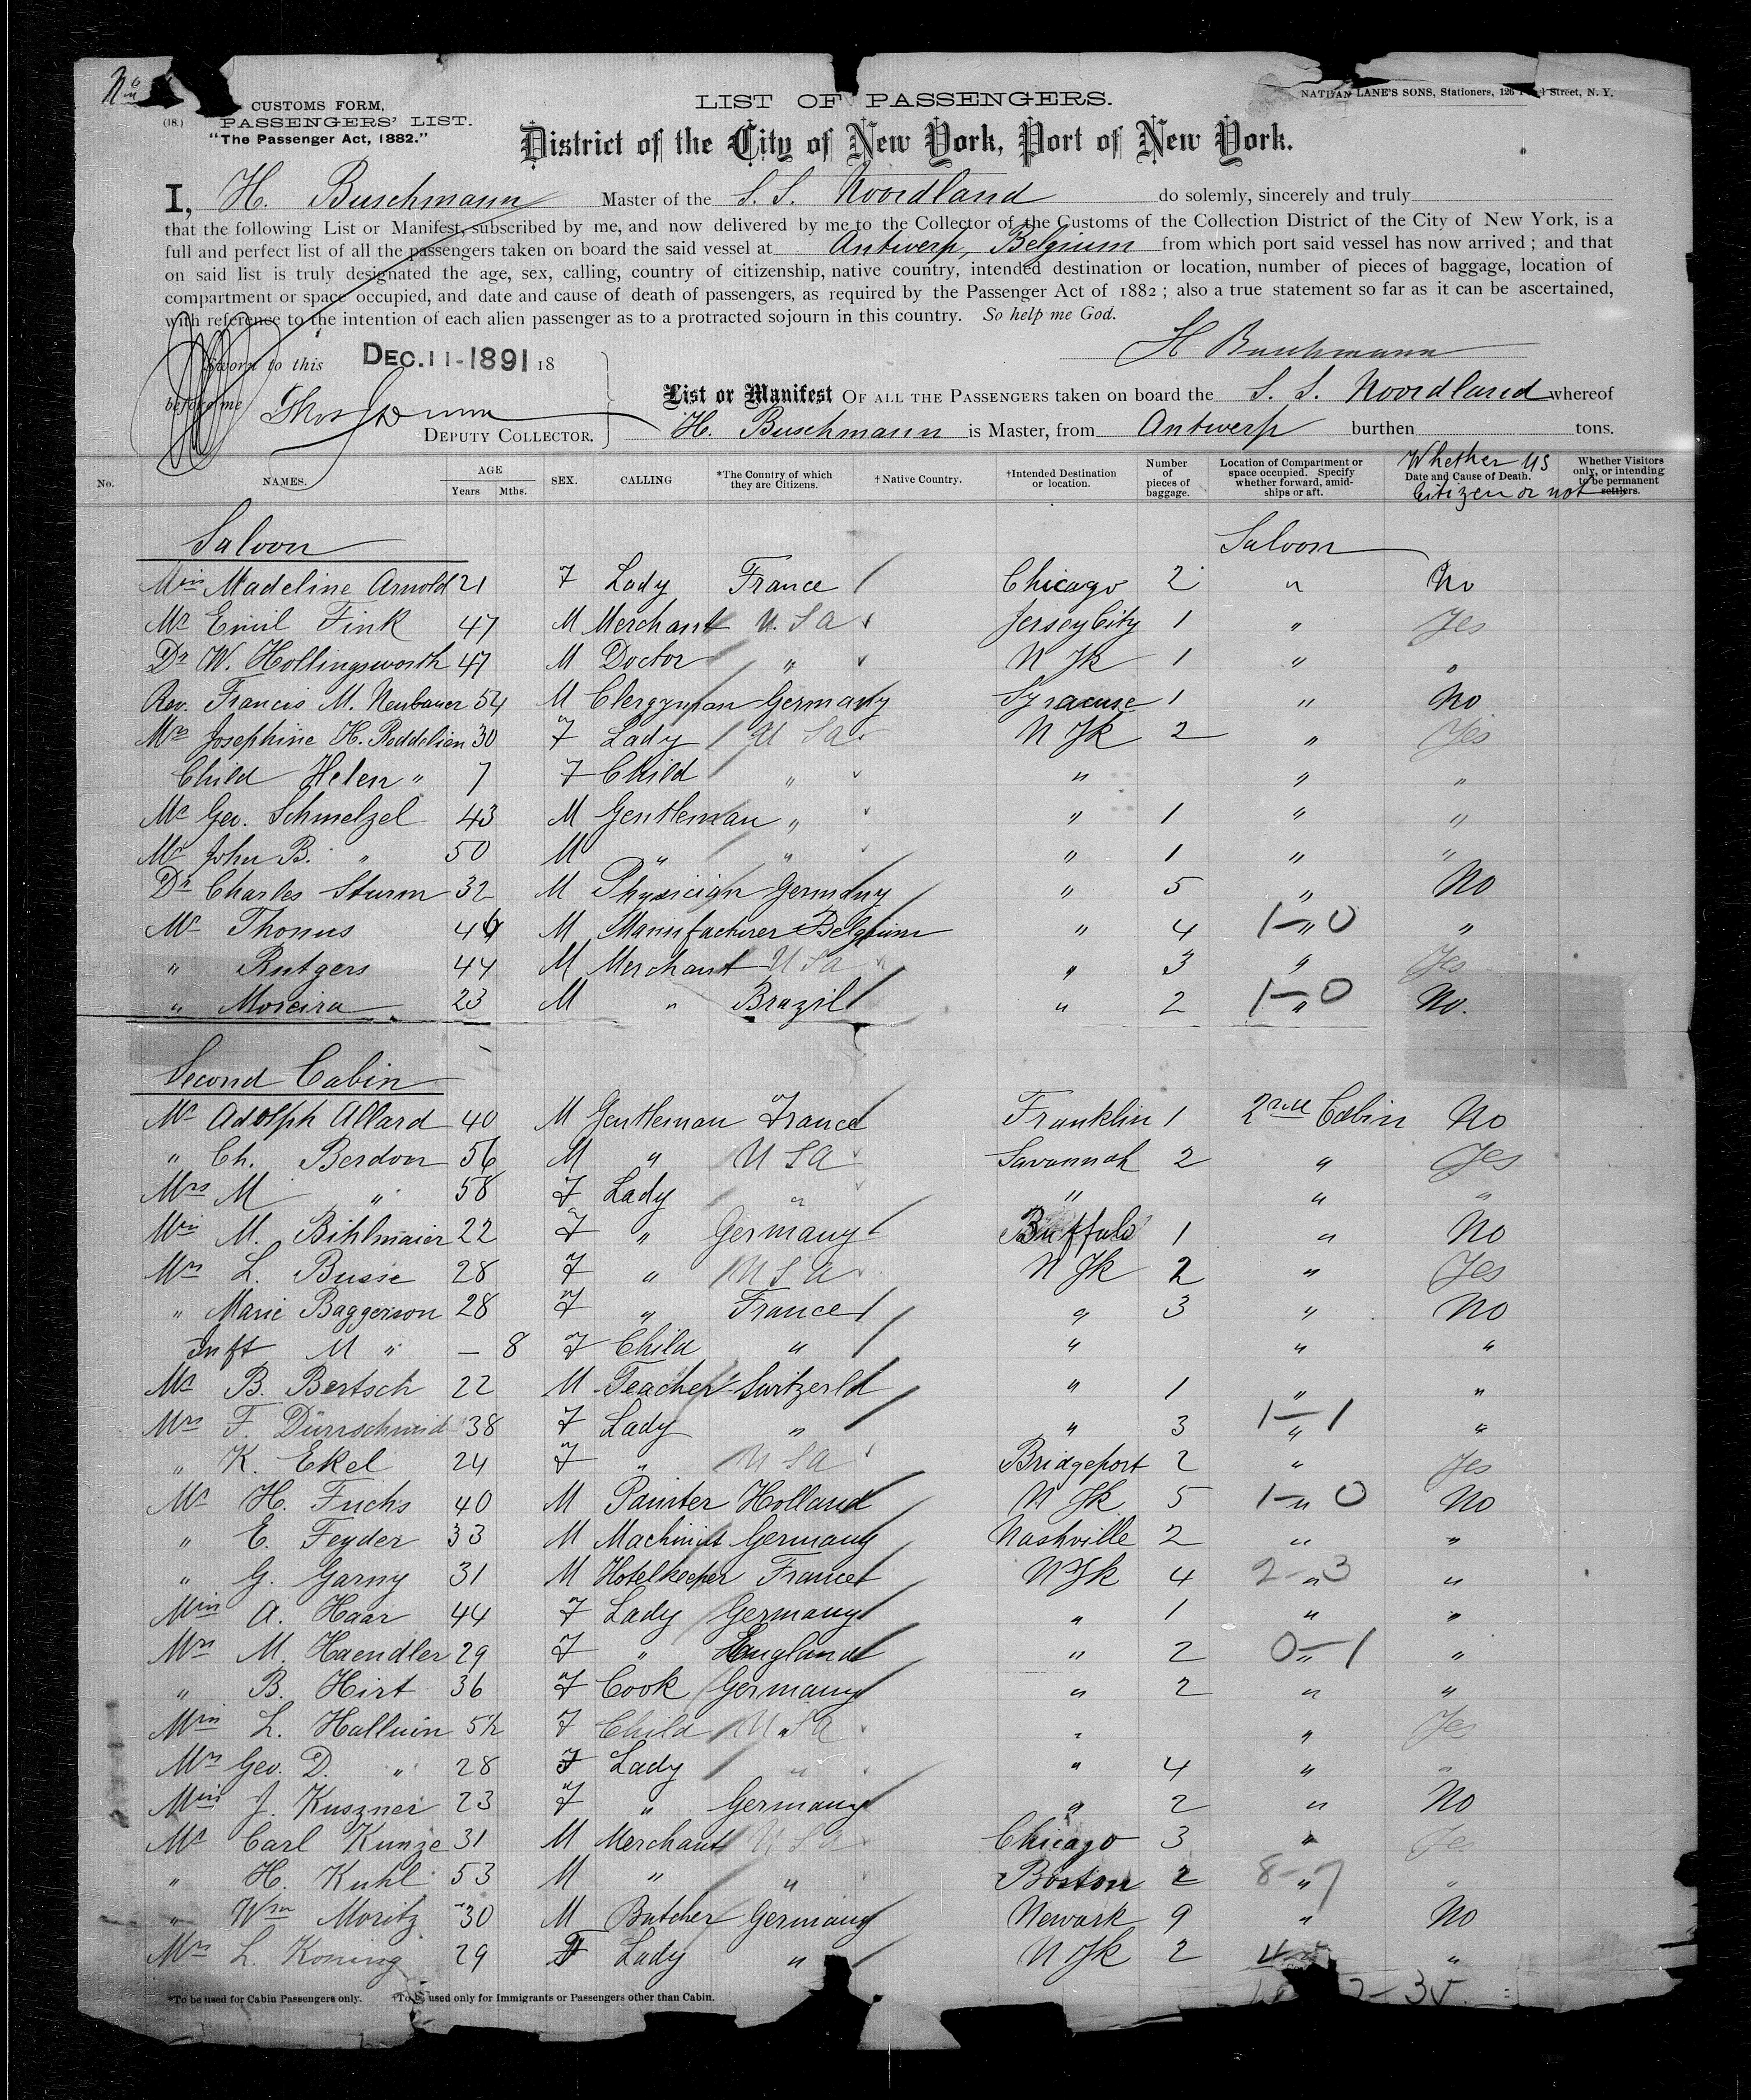 No
(18.)
CUSTOMS FORM.
PASSENGERS' LIST.
"The Passenger Act, 1882."
LIST OF PASSENGERS.
NATHAN LANE'S SONS, Stationers, 126 Street, N. Y.
District of the City of New York, Port of New York.
I, H. Buschmann Master of the S. S. Noordland do solemly, sincerely and truly
that the following List or Manifest, subscribed by me, and now delivered by me to the Collector of the Customs of the Collection District of the City of New York, is a
full and perfect list of all the passengers taken on board the said vessel at Antwerp, Belgium from which port said vessel has now arrived ; and that
on said list is truly designated the age, sex, calling, country of citizenship, native country, intended destination or location, number of pieces of baggage, location of
compartment or space occupied, and date and cause of death of passengers, as required by the Passenger Act of 1882 ; also a true statement so far as it can be ascertained,
with reference to the intention of each alien passenger as to a protracted sojourn in this country. So help me God.
H Buschmann
Sworn to this DEC. 11-1891 18
before me
DEPUTY COLLECTOR.
List or Manifest OF ALL THE PASSENGERS taken on board the S. S. Noordland whereof
H. Buschmann is Master, from Antwerp burthen tons.
No. NAMES. AGE Years Mths. SEX. CALLING *The Country of which they are Citizens. †Native Country. †Intended Destination or location. Number of pieces of baggage. Location of Compartment or space occupied. Specify whether forward, amidships or aft. Date and Cause of Death. Whether US Citizen or not Whether Visitors only, or intending to be permanent settlers.
Saloon Saloon
Miss Madeline Arnold 21 F Lady France Chicago 2 " No
Mr Emil Fink 47 M Merchant U.S a Jersey City 1 " Yes
Dr W. Hollingsworth 47 M Doctor " N Yk 1 " "
Rev. Francis M. Neubauer 54 M Clergyman Germany Syracuse 1 " No
Mrs Josephine H. Reddelien 30 F Lady U Sa N Yk 2 " Yes
Child Helen " 7 F Child " " " "
Mr Geo. Schmelzel 43 M Gentleman " " 1 " "
Mr John B. " 50 M " " " 1 " "
Dr Charles Sturm 32 M Physician Germany " 5 " No
Mr Thonus 44 M Manufacturer Belgium " 4 1-0 " "
" Rutgers 44 M Merchant U Sa " 3 " Yes
" Moreira 23 M " Brazil " 2 1-0 " No.
Second Cabin
Mr Adolph Allard 40 M Gentleman France Franklin 1 2nd Cabin No
" Ch. Berdon 56 M " U S a Savannah 2 " Yes
Mrs M " 58 F Lady " " " "
Miss M. Bihlmaier 22 F " Germany Buffalo 1 " No
Mrs L. Busie 28 F " U S a N Yk 2 " Yes
" Marie Baggerison 28 F " France " 3 " No
Inft M " - 8 F Child " " " "
Mr B. Bertsch 22 M Teacher Switzerld " 1 " "
Mrs F. Dürrschmid 38 F Lady " " 3 1-1 " "
" K. Ekel 24 F " U S a Bridgeport 2 " Yes
Mr H. Fuchs 40 M Painter Holland N Yk 5 1-0 " No
" E. Feyder 33 M Machinist Germany Nashville 2 " "
" G. Garny 31 M Hotelkeeper France N Yk 4 2-3 " "
Miss A. Haar 44 F Lady Germany " 1 " "
Mrs M. Haendler 29 F " England " 2 0-1 " "
" B. Hirt 36 F Cook Germany " 2 " "
Miss L. Halluin 5½ F Child U S a " " Yes
Mrs Geo. D. " 28 F Lady " " 4 " "
Miss J. Kuszner 23 F " Germany " 2 " No
Mr Carl Kunze 31 M Merchant U S a Chicago 3 " Yes
" H. Kuhl 53 M " " Boston 2 8-7 " "
" Wm Moritz 30 M Butcher Germany Newark 9 " No
Mrs L. Koning 29 F Lady " N Yk 2 "
*To be used for Cabin Passengers only. †To be used only for Immigrants or Passengers other than Cabin.